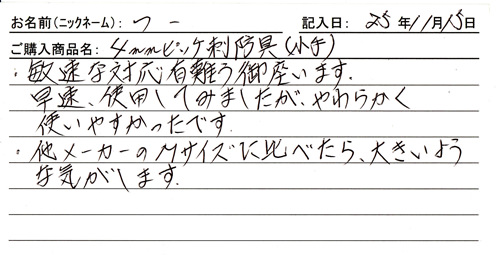 お名前(ニックネーム): つー 記入日: 25年11月15日
ご購入商品名: 4mmピッチ刺防具(小手)
・敏速な対応有難う御座います。
早速、使用してみましたが、やわらかく
使いやすかったです。
・他メーカーのMサイズに比べたら、大きいよう
な気がします。